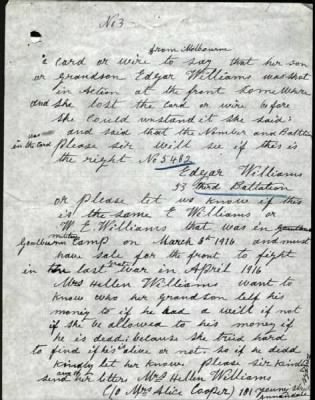 No 3
from Melbourne
a card or wire to say that her son
or grandson Edgar Williams was shot
in Action at the front some where
and she lost the card or wire before
she could unstand it she said:
was in the card and said that the Number and Battlion
Please sir will see if this is
the right No 5482
Edgar Williams
53 third Battation
or please let us know if this
is the same E Williams or
W E. Williams that was in
Goulburn military Camp on March 5th 1916 and must
have sale for the front to fight
in the last great war in April 1916
Mrs Hellen Williams want to
know who her grandson left his
money to if he had a will if not
if she be allowed to his money if
he is dead: because she tried hard
to find if he is alive or not. so if he dead
kindly let her know. Please sir kindly
send her letters Mrs Hellen William
C/o Mrs Alice Cooper) 181 young St
Annandale